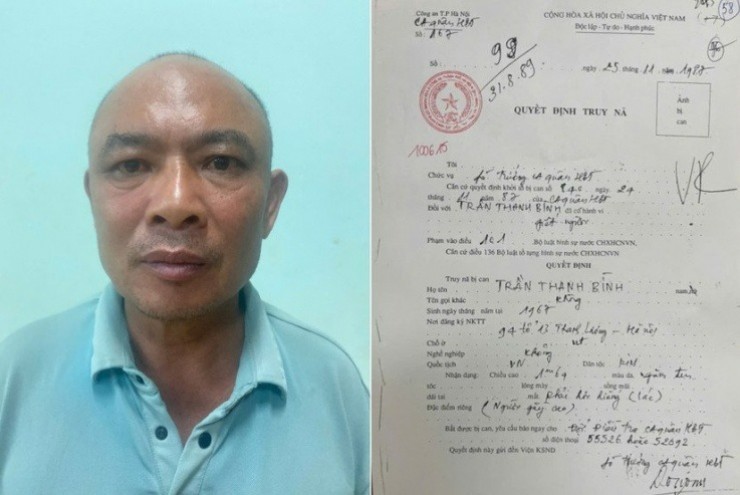 Công an T.P Hà Nội
CỘNG HÒA XÃ HỘI CHỦ NGHĨA VIỆT NAM
58
CA quận HBT
Độc lập - Tự do - Hạnh phúc
Số: 167
99
Số:
ngày 25 tháng 11 năm 1987
31.8.89
QUYẾT ĐỊNH TRUY NÃ
Ảnh
bị
can
100615
Tôi
Chức vụ Trưởng CA quận HBT
Căn cứ quyết định khởi tố bị can số ngày 24
tháng 11 năm 87 của CA quận HBT
Đối với TRẦN THANH BÌNH đã có hành vi
giết người
Phạm vào điều 101 Bộ luật hình sự nước CHXHCNVN.
Căn cứ điều 136 Bộ luật tố tụng hình sự nước CHXHCNVN,
QUYẾT ĐỊNH
Truy nã bị can
Họ tên TRẦN THANH BÌNH nam
Tên gọi khác không
Sinh ngày tháng năm tại 1967
Nơi đăng ký NKTT 94 tổ 13 Thanh Hà Nội
Chỗ ở nt
Nghề nghiệp không
Quốc tịch VN Dân tộc kinh
Nhận dạng: Chiều cao 1m64 màu da ngăm đen
tóc lông mày sống mũi
dái tai mắt phải hơi
Đặc điểm riêng (Người gầy cao)
Bắt được bị can, yêu cầu báo ngay cho Đội Điều tra CA quận HBT
số điện thoại 55526 hoặc 52092
Quyết định này gửi đến Viện KSND
Trưởng CA quận HBT